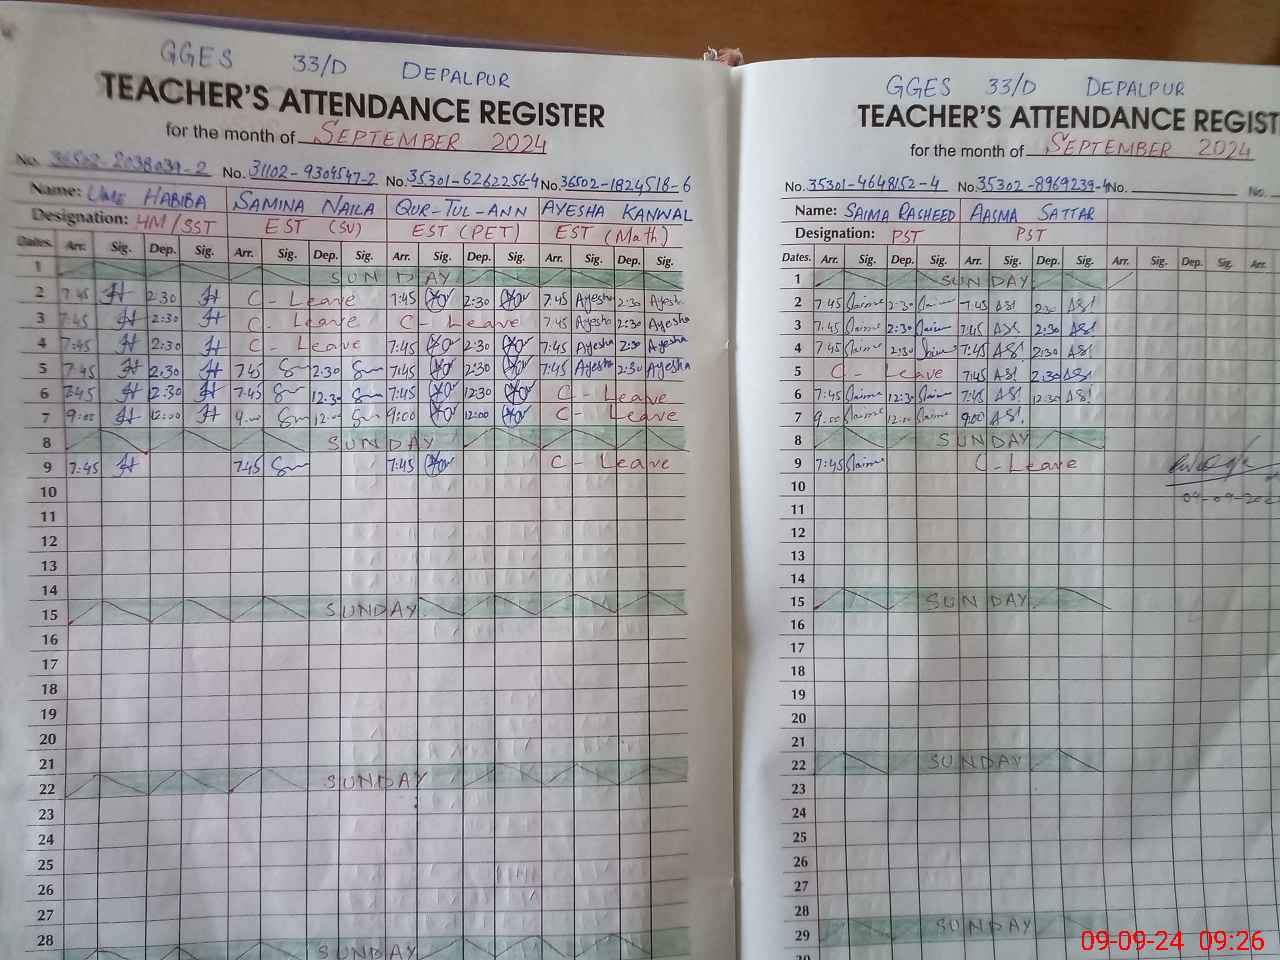 GGES 33/D DEPALPUR
TEACHER'S ATTENDANCE REGISTER
for the month of SEPTEMBER 2024
No. 36502-2038039-2 No. 31102-9304547-2 No. 35301-6262256-4 No. 36502-1824516-6
Name: UME HABIBA SAMINA NAILA QUR-TUL-ANN AYESHA KANWAL
Designation: HM/SST EST (SV) EST (PET) EST (Math)
Dates. Arr. Sig. Dep. Sig. Arr. Sig. Dep. Sig. Arr. Sig. Dep. Sig. Arr. Sig. Dep. Sig.
1 SUNDAY
2 7:45 2:30 C-Leave 7:45 2:30 7:45 Ayesha 2:30 Ayesha
3 7:45 2:30 C-Leave C-Leave 7:45 Ayesha 2:30 Ayesha
4 7:45 2:30 C-Leave 7:45 2:30 7:45 Ayesha 2:30 Ayesha
5 7:45 2:30 7:45 2:30 7:45 2:30 7:45 Ayesha 2:30 Ayesha
6 7:45 2:30 7:45 12:30 7:45 12:30 C-Leave
7 9:00 12:00 9:00 12:00 9:00 12:00 C-Leave
8 SUNDAY
9 7:45 7:45 7:45 C-Leave
10
11
12
13
14
15 SUNDAY
16
17
18
19
20
21
22 SUNDAY
23
24
25
26
27
28
SUNDAY
GGES 33/D DEPALPUR
TEACHER'S ATTENDANCE REGIST
for the month of SEPTEMBER 2024
No. 35301-4648152-4 No. 35302-8969239-4 No. No.
Name: SAIMA RASHEED AASMA SATTAR
Designation: PST PST
Dates. Arr. Sig. Dep. Sig. Arr. Sig. Dep. Sig. Arr. Sig. Dep. Sig. Arr.
1 SUNDAY
2 7:45 Saima 2:30 Saima 7:45 2:30
3 7:45 Saima 2:30 Saima 7:45 2:30
4 7:45 Saima 2:30 Saima 7:45 2:30
5 C-Leave 7:45 2:30
6 7:45 Saima 12:30 Saima 7:45 12:30
7 9:00 Saima 12:00 Saima 9:00
8 SUNDAY
9 7:45 Saima C-Leave
10
11
12
13
14
15 SUNDAY
16
17
18
19
20
21
22 SUNDAY
23
24
25
26
27
28
29 SUNDAY
09-09-24 09:26